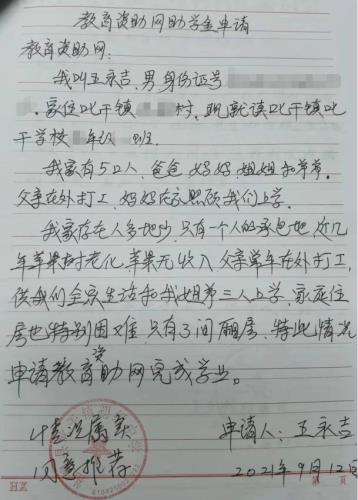 教育资助网助学金申请
教育资助网：
我叫王永吉，男，身份证号
。家住叱干镇 村，现就读叱干镇叱
干学校 年级 班。
我家有5口人，爸爸、妈妈、姐姐和弟弟。
父亲在外打工，妈妈在家照顾我们上学。
我家存在人多地少，只有一个人的承包地，近几
年苹果树老化，苹果无收入，父亲常年在外打工，
供我们全家生活和我姐弟三人上学，家庭住
房也特别困难，只有3间厢房，特此情况
申请教育资助网完成学业。
情况属实
同意推荐
申请人：王永吉
2021年9月12日
HZ
第 页